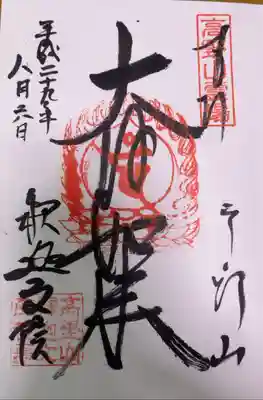 高野山霊場
奉拝
高野山
大日如来
平成二十九年
八月六日
釈迦文院